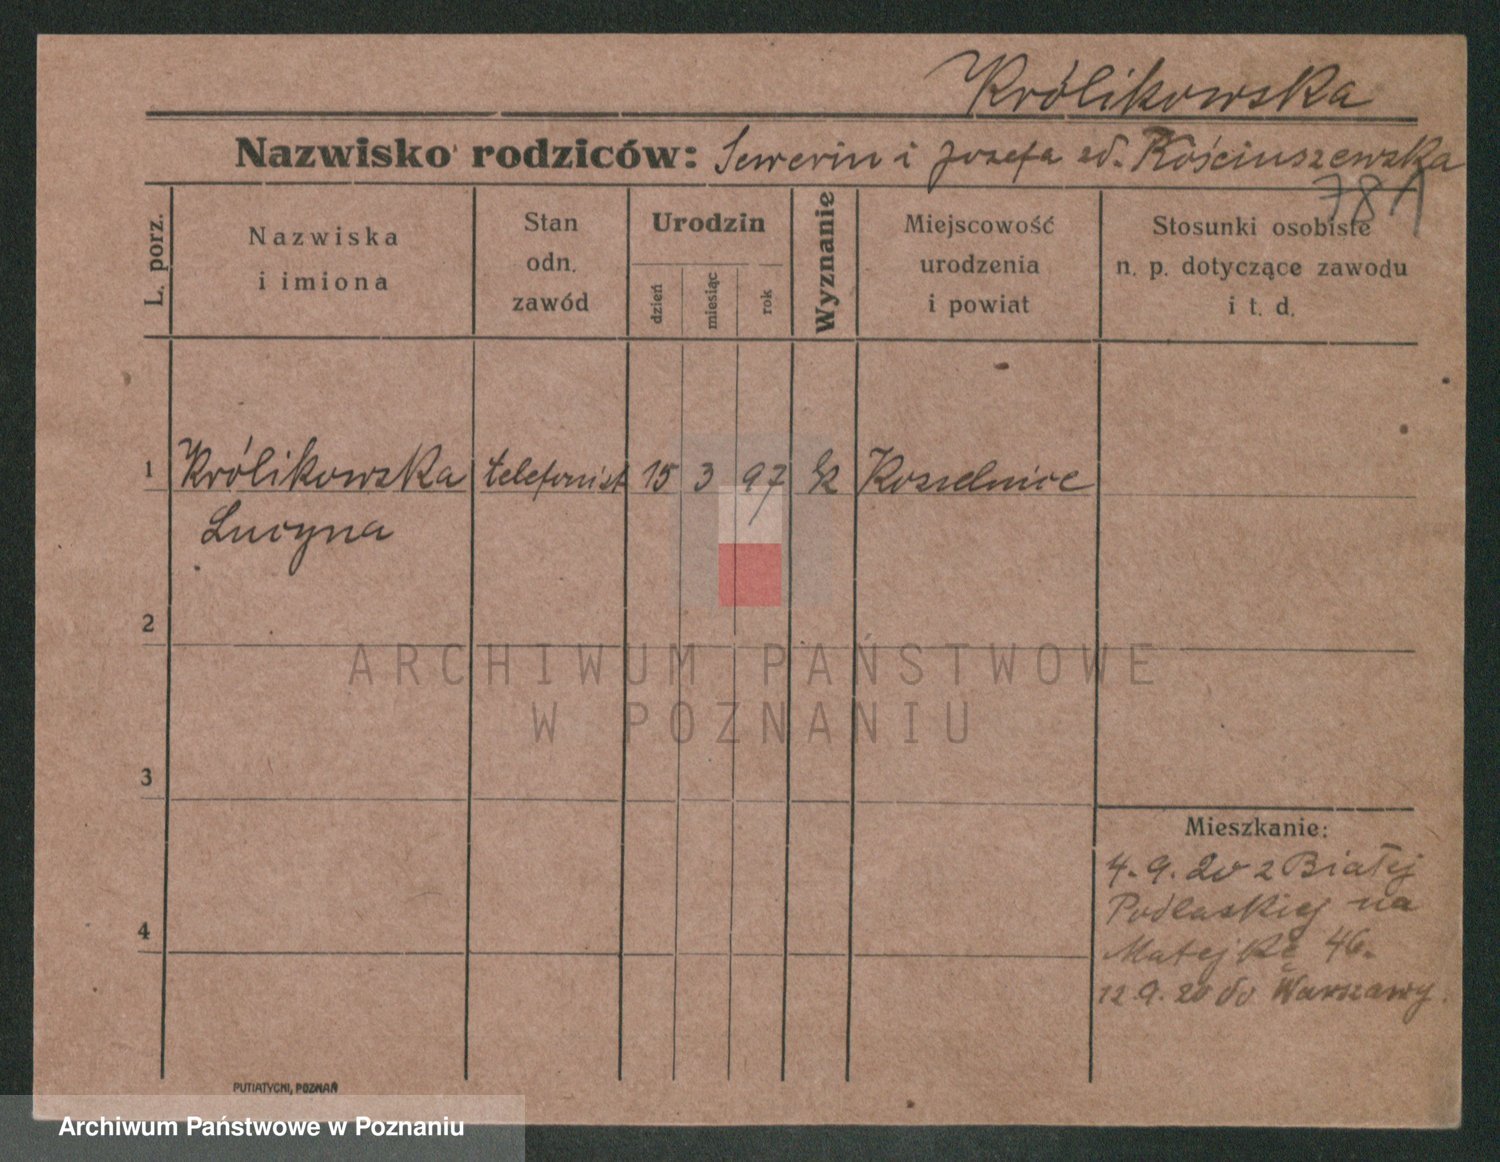 Królikowska
Nazwisko rodziców: Sewerin i Jozefa zd. Kościuszewska
781
L. porz.
Nazwiska
i imiona
Stan
odn.
zawód
Urodzin
dzień
miesiąc
rok
Wyznanie
Miejscowość
urodzenia
i powiat
Stosunki osobiste
n. p. dotyczące zawodu
i t. d.
1 Królikowska telefonist 15 3 97
Lucyna
2
3
4
Mieszkanie:
4.9.20 z Białej
Podlaskiej na
Matejkę 46.
12 9. 20 do Warszawy.
PUTIATYCKI, POZNAŃ
ARCHIWUM PAŃSTWOWE
W POZNANIU
Archiwum Państwowe w Poznaniu